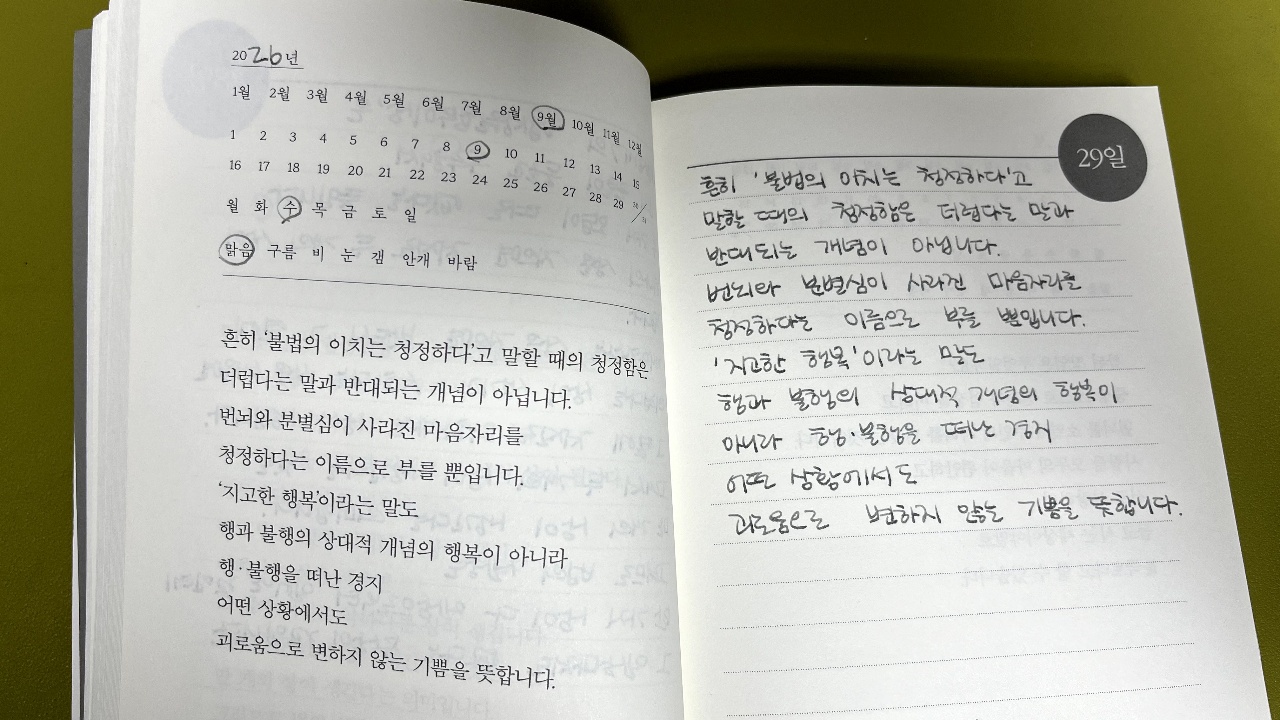 2026년
1월 2월 3월 4월 5월 6월 7월 8월 9월 10월 11월 12월
1 2 3 4 5 6 7 8 9 10 11 12 13 14 15
16 17 18 19 20 21 22 23 24 25 26 27 28 29 30/31
월 화 수 목 금 토 일
맑음 구름 비 눈 갬 안개 바람
흔히 ‘불법의 이치는 청정하다’고 말할 때의 청정함은
더럽다는 말과 반대되는 개념이 아닙니다.
번뇌와 분별심이 사라진 마음자리를
청정하다는 이름으로 부를 뿐입니다.
‘지고한 행복’이라는 말도
행과 불행의 상대적 개념의 행복이 아니라
행·불행을 떠난 경지
어떤 상황에서도
괴로움으로 변하지 않는 기쁨을 뜻합니다.
29일
흔히 '불법의 이치는 청정하다'고
말할 때의 청정함은 더럽다는 말과
반대되는 개념이 아닙니다.
번뇌와 분별심이 사라진 마음자리를
청정하다는 이름으로 부를 뿐입니다.
'지고한 행복'이라는 말도
행과 불행의 상대적 개념의 행복이
아니라 행·불행을 떠난 경지
어떤 상황에서도
괴로움으로 변하지 않는 기쁨을 뜻합니다.